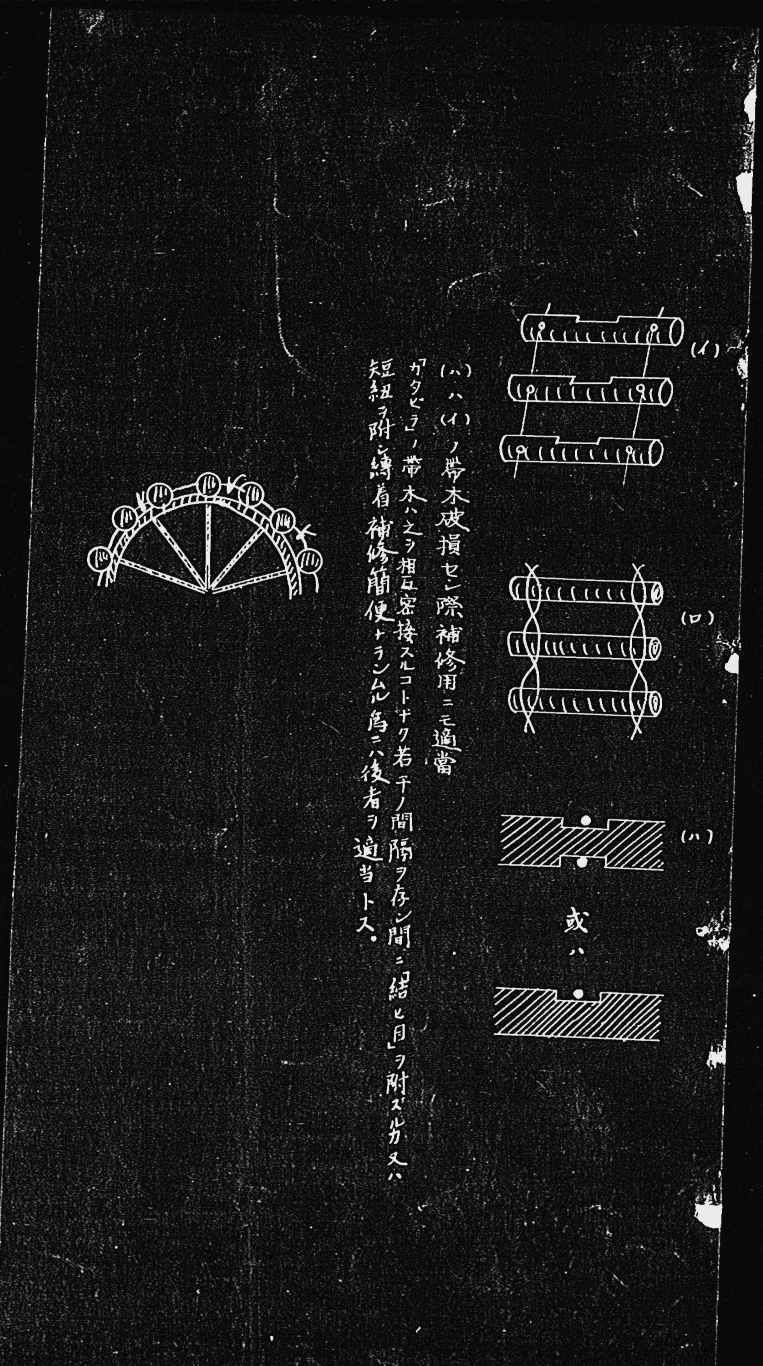 (イ)
(ロ)
(ハ)
或ハ
(ハ)ハ(イ)ノ帶木破損セン際補修用ニモ適當
「カタピラ」ノ帶木ハ之ヲ相互密接スルコトナク若干ノ間隔ヲ存シ間ニ「結ヒ目」ヲ附スルカ又ハ
短紐ヲ附シ縛着補修簡便ナラシムル爲ニハ後者ヲ適当トス。